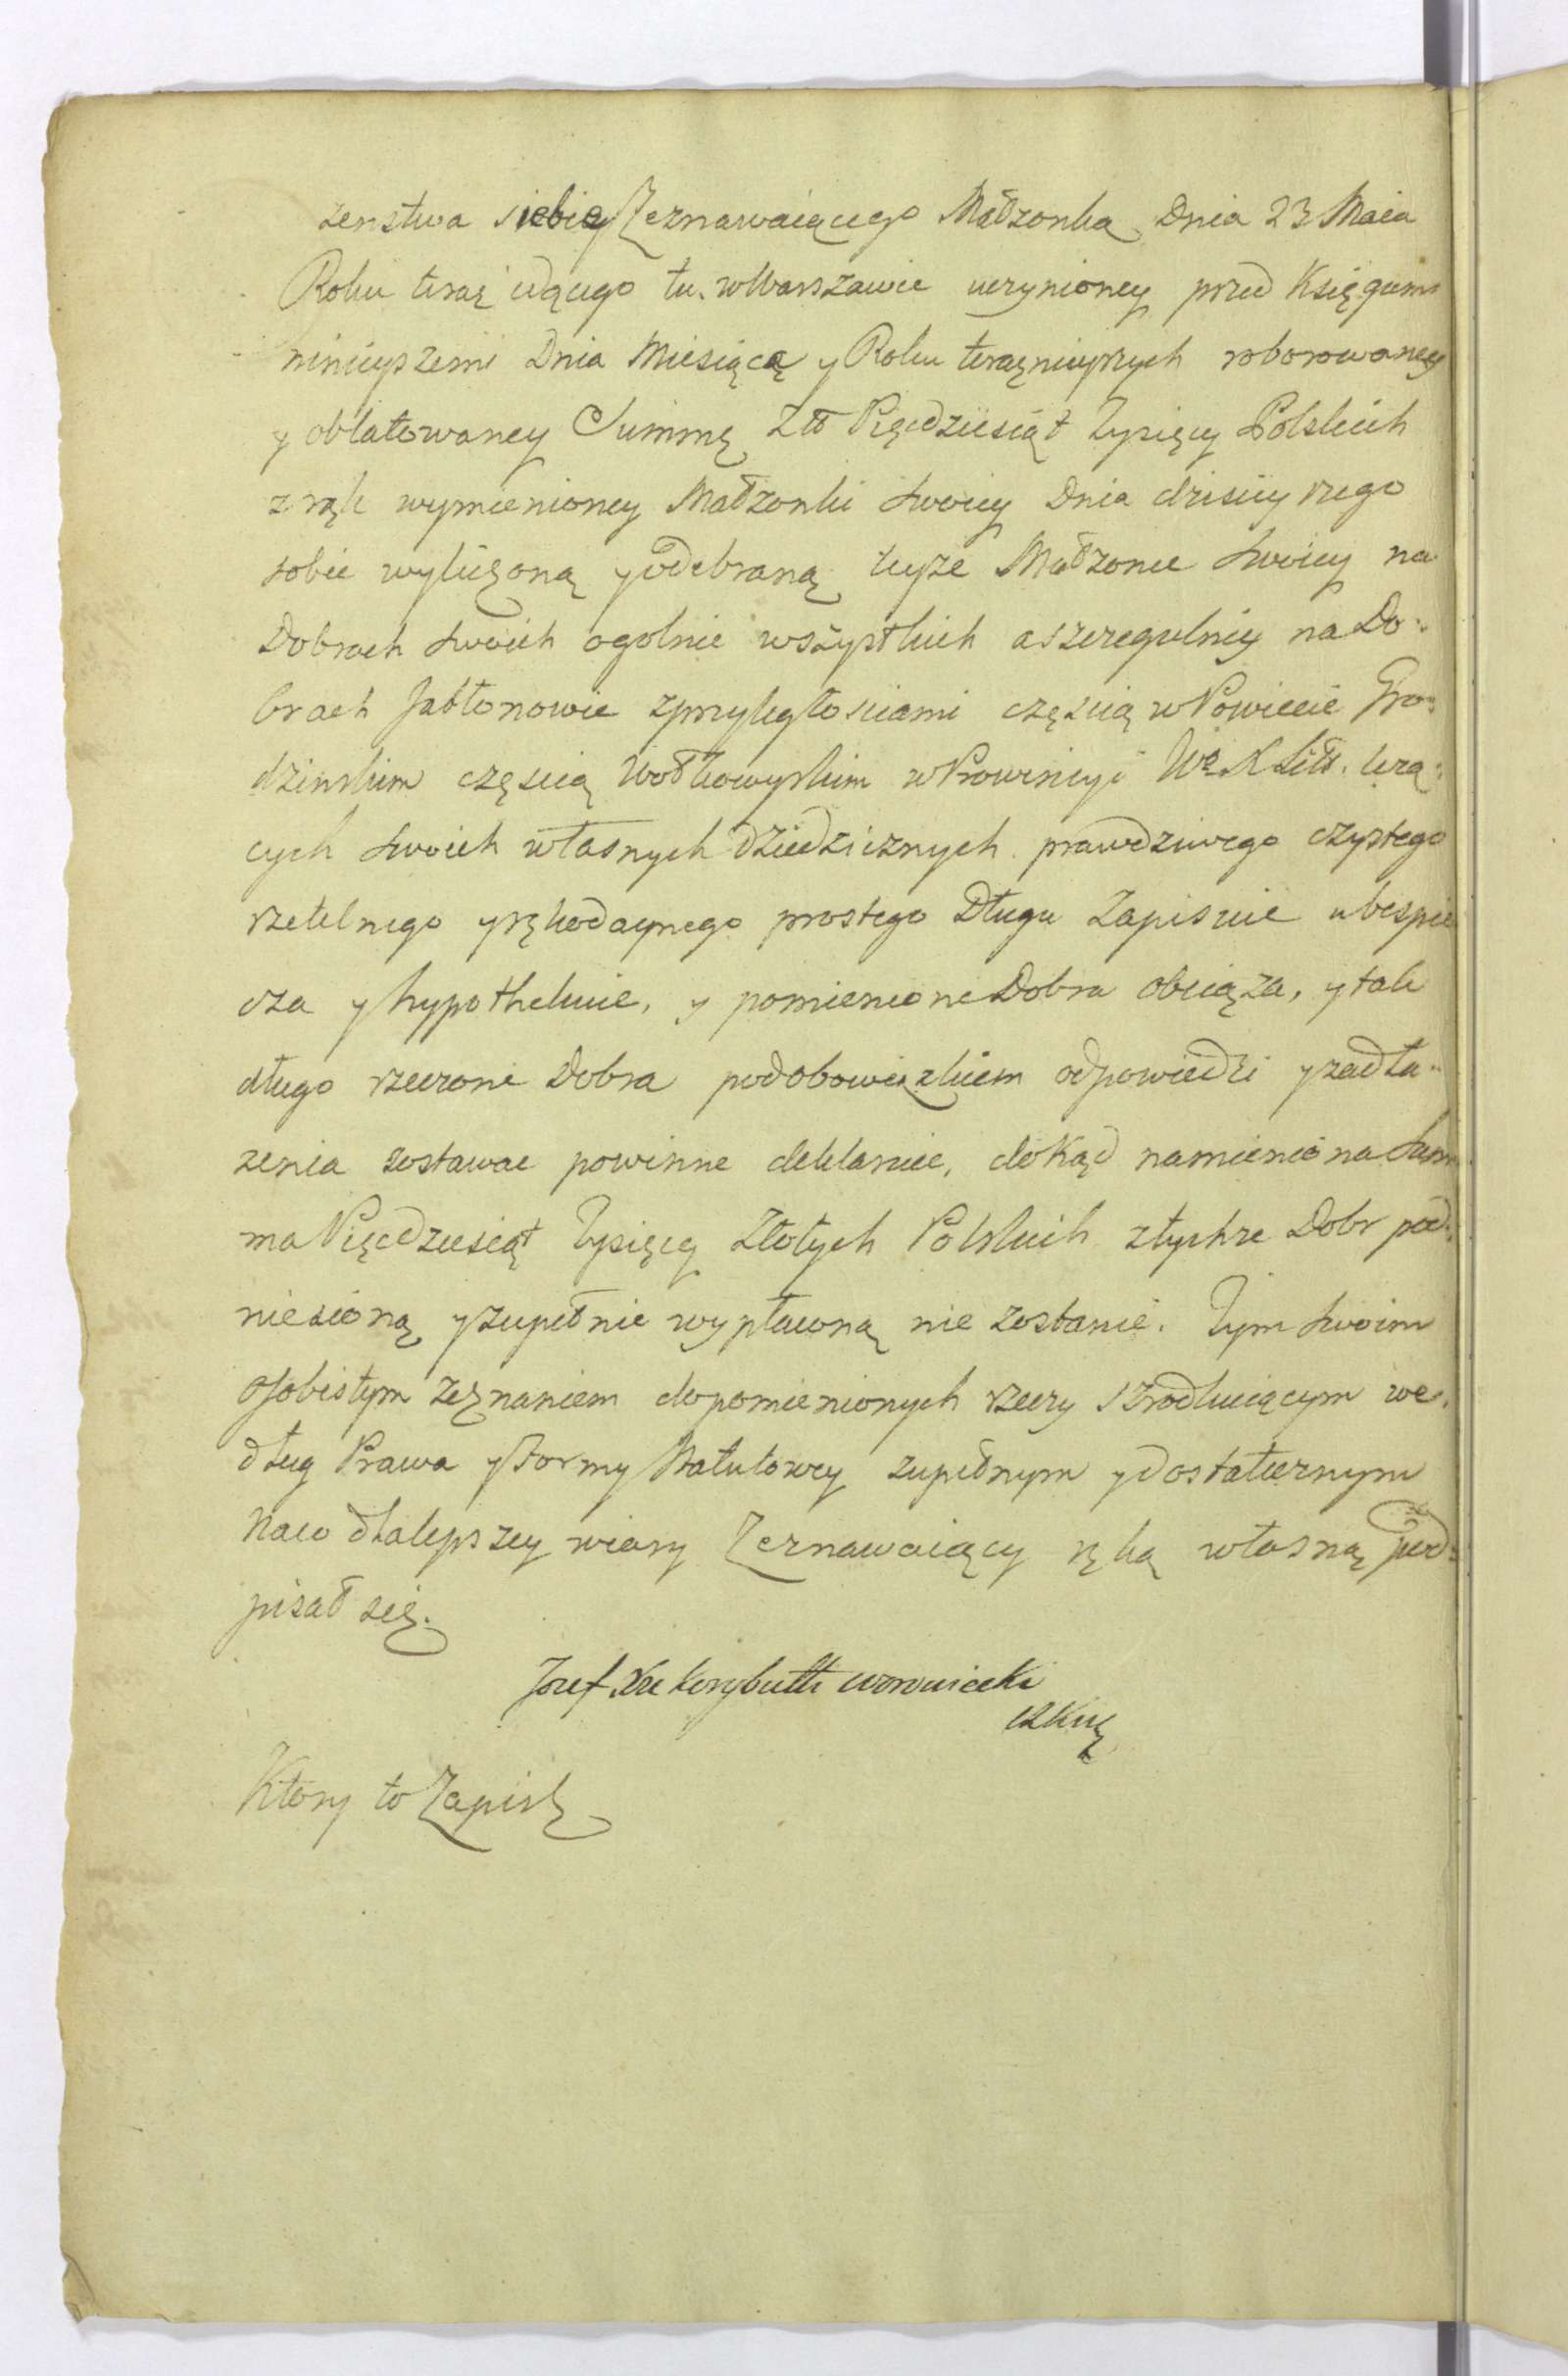 zenstwa siebie y Zeznawaiącego Małzonką Dnia 23 Maia
Roku teraz idącego tu w Warszawie uczynioney przed Księgami
ninieyszemi Dnia Miesiąca y Roku teraznieyszych roborowaney
y oblatowaney Summę Złł Pięcdziesiąt Tysięcy Polskich
z rąk wymienioney Małzonki swoiey Dnia dzisieyszego
sobie wyliczoną y odebraną teyze Małzonce swoiey na
Dobrach swoich ogolnie wszystkich a szeregulniey na Do:
brach Jabłonowie z przyległosciami częscią w Powiecie Gro:
dzinskim częscią Wołkowyskim w Prowincyi W° X Litt. lezą:
cych swoich własnych dziedzicznych prawdziwego czystego
rzetelnego y rękodaynego prostego Długu Zapisuie ubespie
cza y hypothekuie, y pomienione Dobra obciąza, y tak
długo rzeczone Dobra pod obowiązkiem odpowiedzi y zadła:
zenia zostawac powinne deklaruie, dokąd namieniona Sum
ma Pięcdziesiąt Tysięcy Złotych Polskich z tychze Dobr pod:
niesioną y zupełnie wypłaconą nie zostanie. Tym swoim
osobistym zeznaniem do pomienionych rzeczy szrodkuiącym we:
dług Prawa y Formy Statutowey zupełnym y dostatecznym
Na co dla lepszey wiary Zeznawaiący ręką własną pod:
pisał się.
Jozef Xże Korybutt Woroniecki
Ktory to Zapis